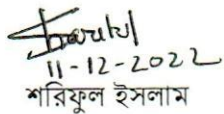 11-12-2022
শরিফুল ইসলাম